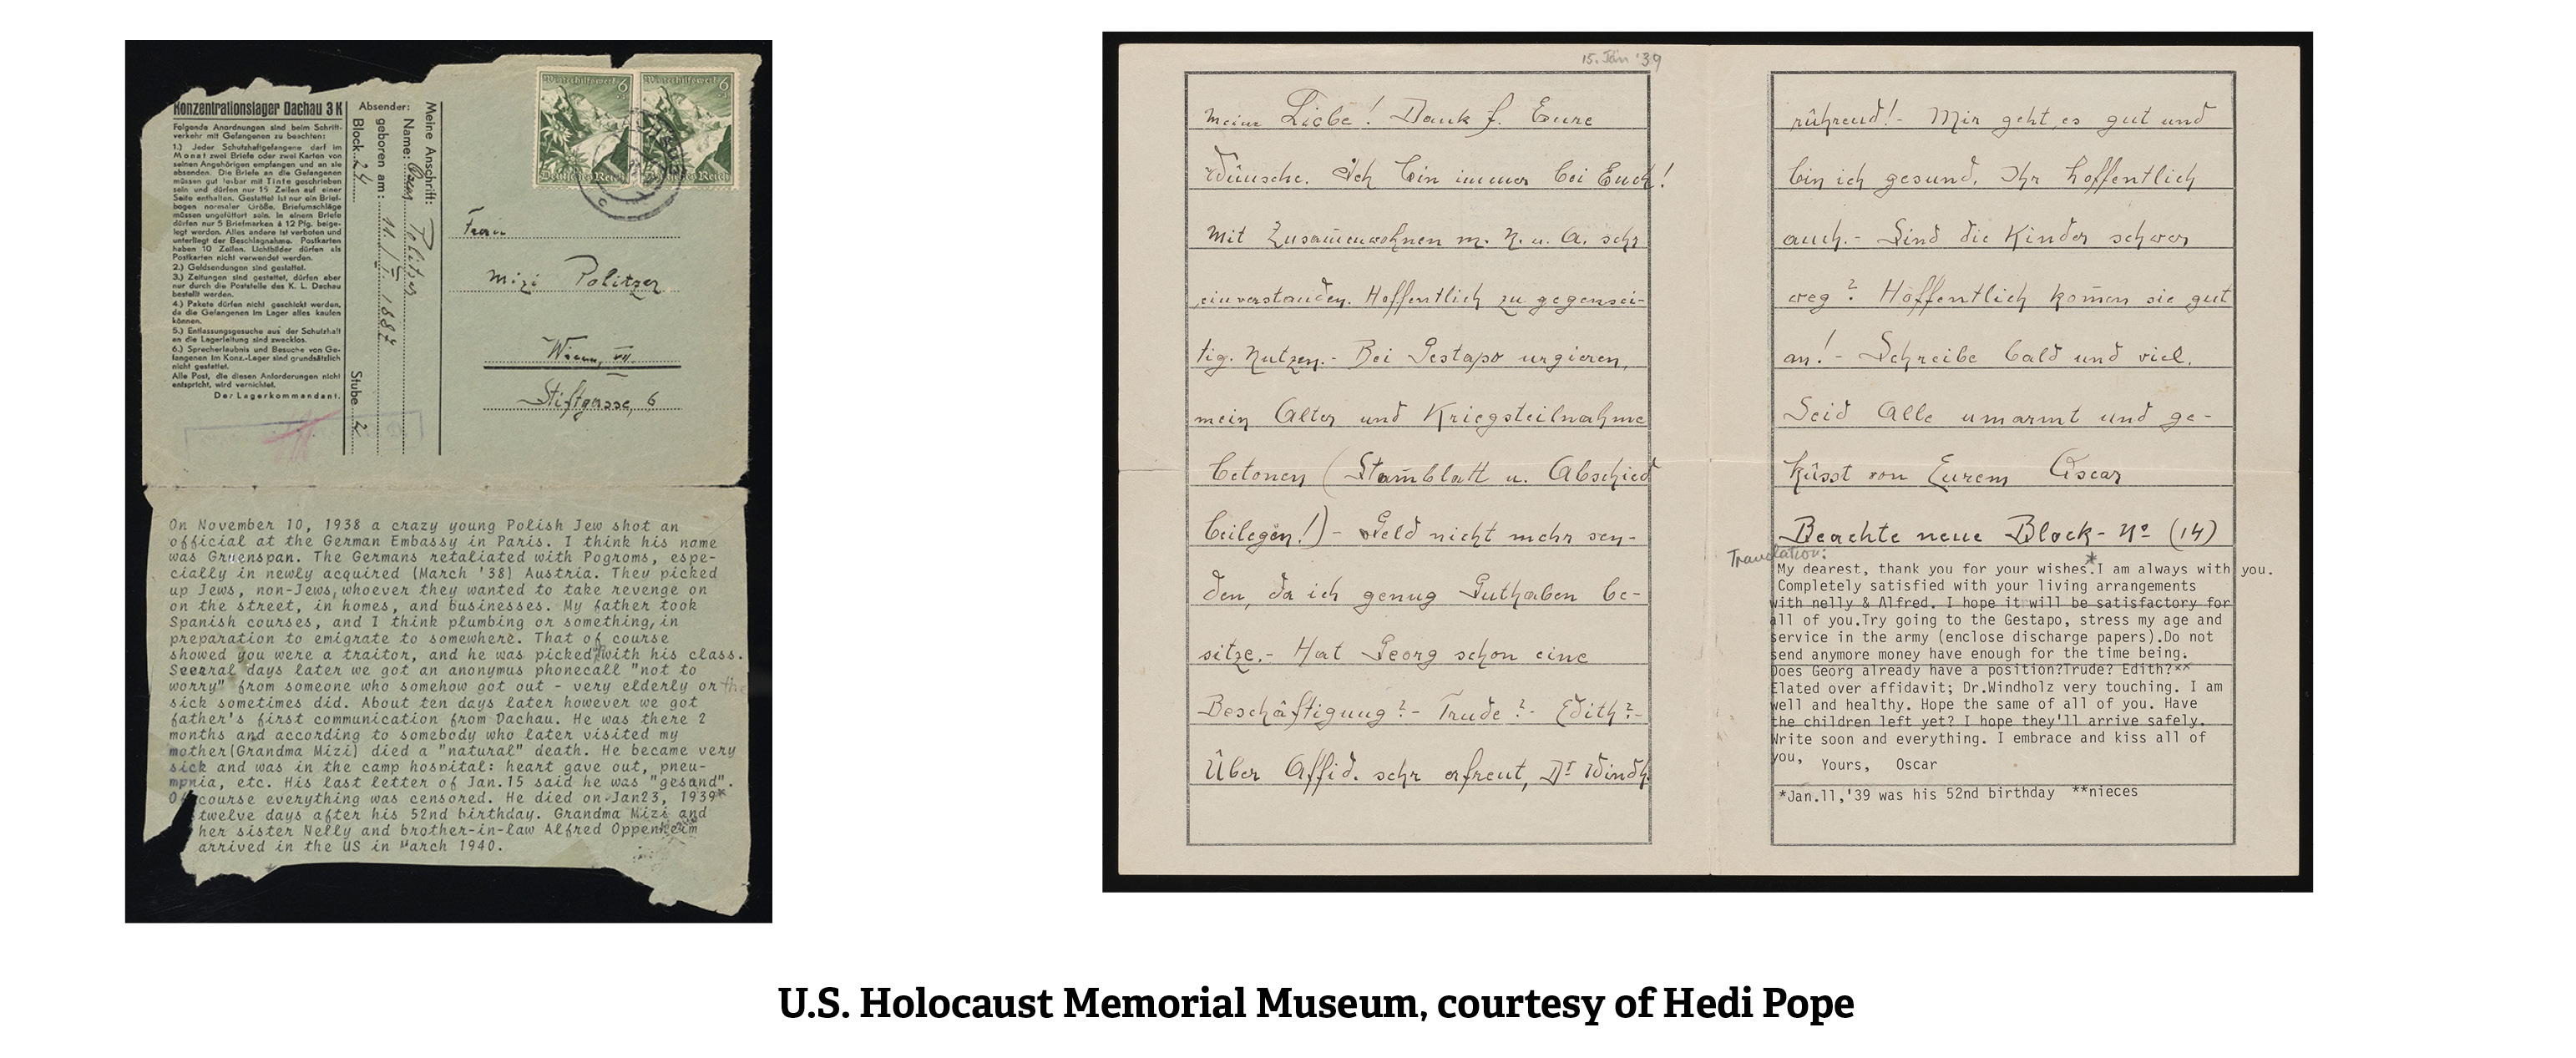 Konzentrationslager Dachau 3 K
Folgende Anordnungen sind beim Schrift-
verkehr mit Gefangenen zu beachten:
1.) Jeder Schutzhaftgefangene darf im
Monat zwei Briefe oder zwei Karten von
seinen Angehörigen empfangen und an sie
absenden. Die Briefe an die Gefangenen
müssen gut lesbar mit Tinte geschrieben
sein und dürfen nur 15 Zeilen auf einer
Seite enthalten. Gestattet ist nur ein Brief-
bogen normaler Größe. Briefumschläge
müssen ungefüttert sein. In einem Briefe
dürfen nur 5 Briefmarken à 12 Pfg. beige-
legt werden. Alles andere ist verboten und
unterliegt der Beschlagnahme. Postkarten
haben 10 Zeilen. Lichtbilder dürfen als
Postkarten nicht verwendet werden.
2.) Geldsendungen sind gestattet.
3.) Zeitungen sind gestattet, dürfen aber
nur durch die Poststelle des K. L. Dachau
bestellt werden.
4.) Pakete dürfen nicht geschickt werden,
da die Gefangenen im Lager alles kaufen
können.
5.) Entlassungsgesuche aus der Schutzhaft
an die Lagerleitung sind zwecklos.
6.) Sprecherlaubnis und Besuche von Ge-
fangenen im Konz.-Lager sind grundsätzlich
nicht gestattet.
Alle Post, die diesen Anforderungen nicht
entspricht, wird vernichtet.
Der Lagerkommandant.
Meine Anschrift:
Absender:
Name: Oscar Politzer
geboren am: 11./I. 1887
Block 24 Stube 2
Winterhilfswerk 6
Deutsches Reich
Winterhilfswerk 6
Deutsches Reich
Frau
Mizi Politzer
Wien, VII.
Stiftgasse, 6
On November 10, 1938 a crazy young Polish Jew shot an
official at the German Embassy in Paris. I think his name
was Gruenspan. The Germans retaliated with Pogroms, espe-
cially in newly acquired (March '38) Austria. They picked
up Jews, non-Jews, whoever they wanted to take revenge on
on the street, in homes, and businesses. My father took
Spanish courses, and I think plumbing or something, in
preparation to emigrate to somewhere. That of course
showed you were a traitor, and he was picked up with his class.
Seeral days later we got an anonymus phonecall "not to
worry" from someone who somehow got out - very elderly or the
sick sometimes did. About ten days later however we got
father's first communication from Dachau. He was there 2
months and according to somebody who later visited my
mother(Grandma Mizi) died a "natural" death. He became very
sick and was in the camp hospital: heart gave out, pneu-
mpnia, etc. His last letter of Jan.15 said he was "gesand".
Of course everything was censored. He died on Jan23, 1939*
twelve days after his 52nd birthday. Grandma Mizi and
her sister Nelly and brother-in-law Alfred Oppenheim
arrived in the US in March 1940.
15. Jän '39
Meine Liebe! Dank f. Eure
Wünsche. Ich bin immer bei Euch!
Mit Zusam̄enwohnen m. N. u. A. sehr
einverstanden. Hoffentlich zu gegensei-
tig. Nutzen.- Bei Gestapo urgieren,
mein Alter und Kriegsteilnahme
betonen (Stam̄blatt u. Abschied
beilegen!) - Geld nicht mehr sen-
den, da ich genug Guthaben be-
sitze.- Hat Georg schon eine
Beschäftigung?- Trude?- Edith?-
Über Affid. sehr erfreut, Dr Windh.
rührend!- Mir geht es gut und
bin ich gesund. Ihr hoffentlich
auch.- Sind die Kinder schon
weg? Hoffentlich kom̄en sie gut
an!- Schreibe bald und viel.
Seid Alle umarmt und ge-
küsst von Eurem Oscar
Beachte neue Block- No (14)
Translation:
My dearest, thank you for your wishes.*I am always with you.
Completely satisfied with your living arrangements
with nelly & Alfred. I hope it will be satisfactory for
all of you.Try going to the Gestapo, stress my age and
service in the army (enclose discharge papers).Do not
send anymore money have enough for the time being.
Does Georg already have a position?Trude? Edith?**
Elated over affidavit; Dr.Windholz very touching. I am
well and healthy. Hope the same of all of you. Have
the children left yet? I hope they'll arrive safely.
Write soon and everything. I embrace and kiss all of
you,
Yours, Oscar
*Jan.11,'39 was his 52nd birthday **nieces
U.S. Holocaust Memorial Museum, courtesy of Hedi Pope